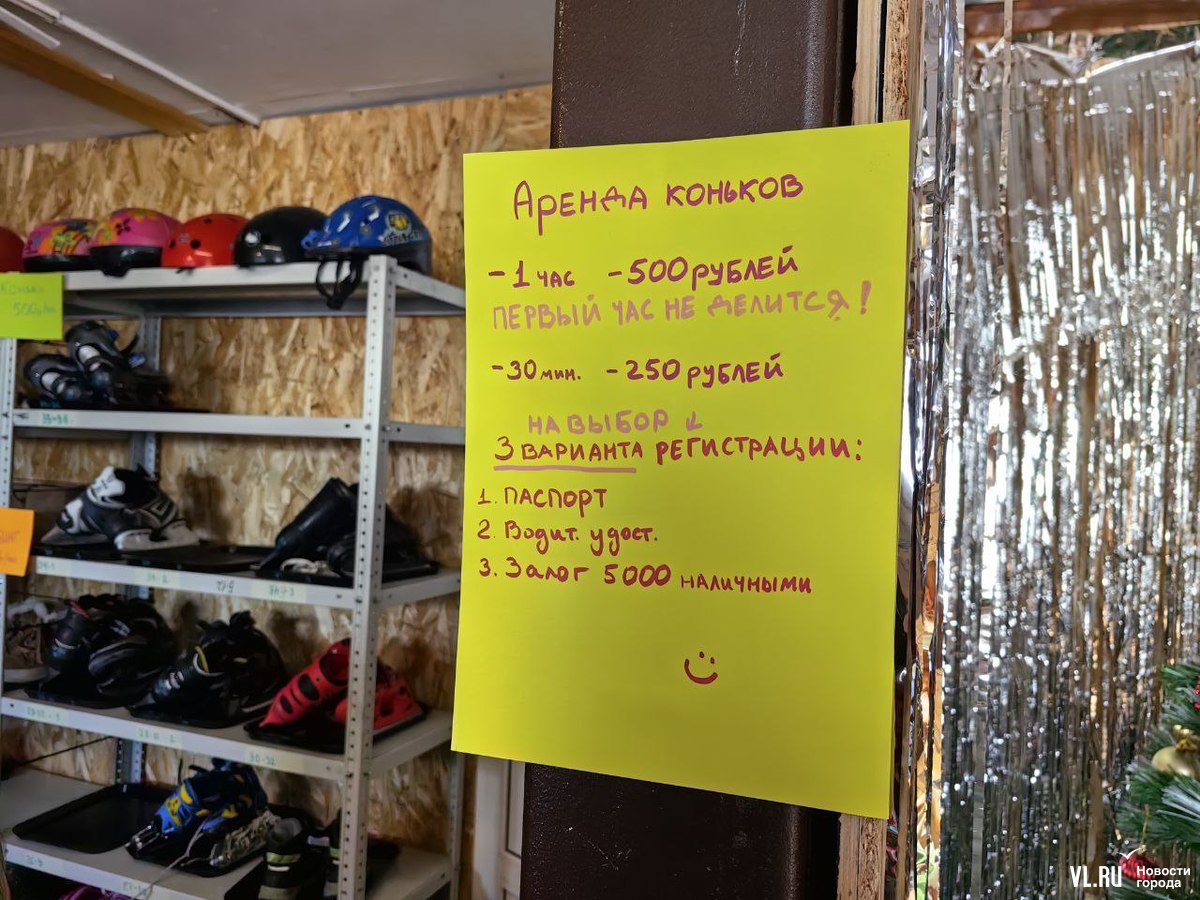 Аренда коньков
- 1 час - 500 рублей
Первый час не делится!
- 30 мин. - 250 рублей
на выбор ↓
3 варианта регистрации:
1. Паспорт
2. Водит. удост.
3. Залог 5000 наличными
VL.RU Новости
города